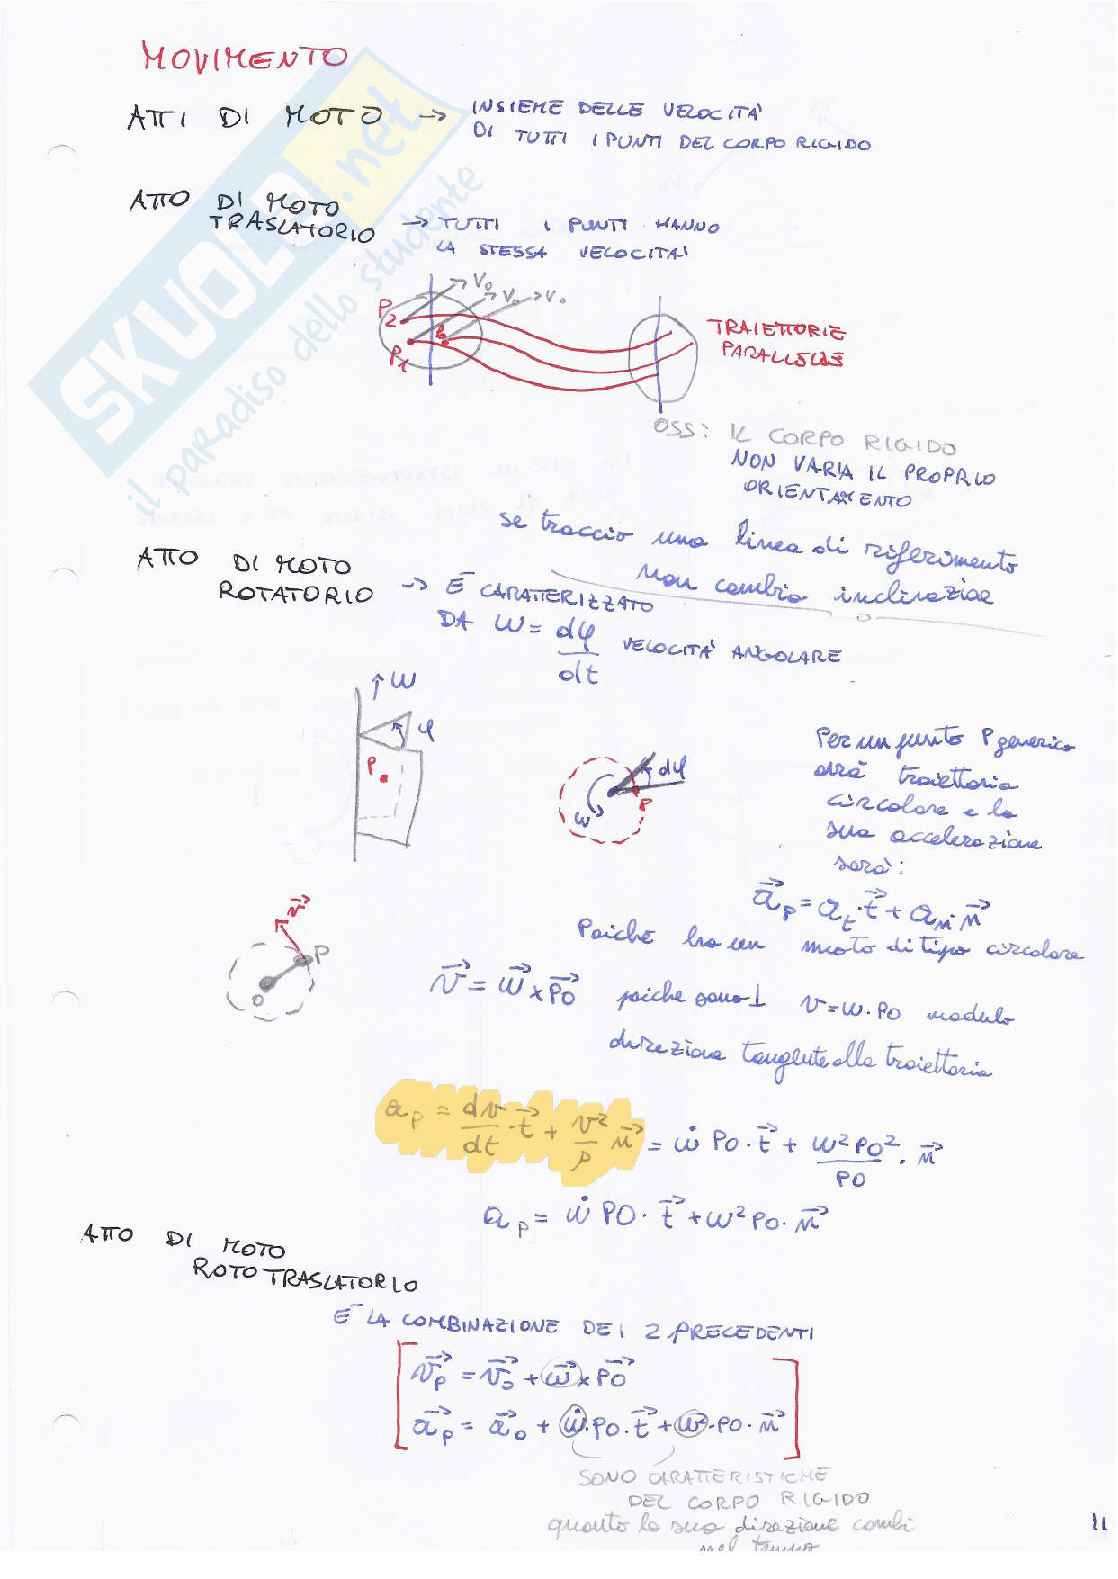 MOVIMENTO
ATTI DI MOTO → INSIEME DELLE VELOCITÀ
DI TUTTI I PUNTI DEL CORPO RIGIDO
ATTO DI MOTO
TRASLATORIO → TUTTI I PUNTI HANNO
LA STESSA VELOCITÀ
V₀
V₀ → V₀
P2
P1
TRAIETTORIE
PARALLELE
OSS: IL CORPO RIGIDO
NON VARIA IL PROPRIO
ORIENTAMENTO
se traccio una linea di riferimento
non cambia inclinazione
ATTO DI MOTO
ROTATORIO → È CARATTERIZZATO
DA ω = dφ/dt VELOCITÀ ANGOLARE
↑ω
φ
P
dφ
P
ω
Per un punto P generico
avrà traiettoria
circolare e la
sua accelerazione
sarà:
a⃗p = at·t⃗ + an·n⃗
Poiche ha un moto di tipo circolare
v⃗
P
O
v⃗ = ω⃗ × PO⃗ poiche sono ⊥ v = ω·PO modulo
direzione tangente alla traiettoria
ap = dv/dt · t⃗ + v²/ρ n⃗ = ω̇ PO · t⃗ + ω² PO²/PO · n⃗
ap = ω̇ PO · t⃗ + ω² PO · n⃗
ATTO DI MOTO
ROTOTRASLATORIO
È LA COMBINAZIONE DEI 2 PRECEDENTI
v⃗p = v⃗o + ω⃗ × PO⃗
a⃗p = a⃗o + ω̇·PO·t⃗ + ω²·PO·n⃗
SONO CARATTERISTICHE
DEL CORPO RIGIDO
quanto la sua direzione cambi
nel tempo
11
SKUOLA.net
il paradiso dello studente